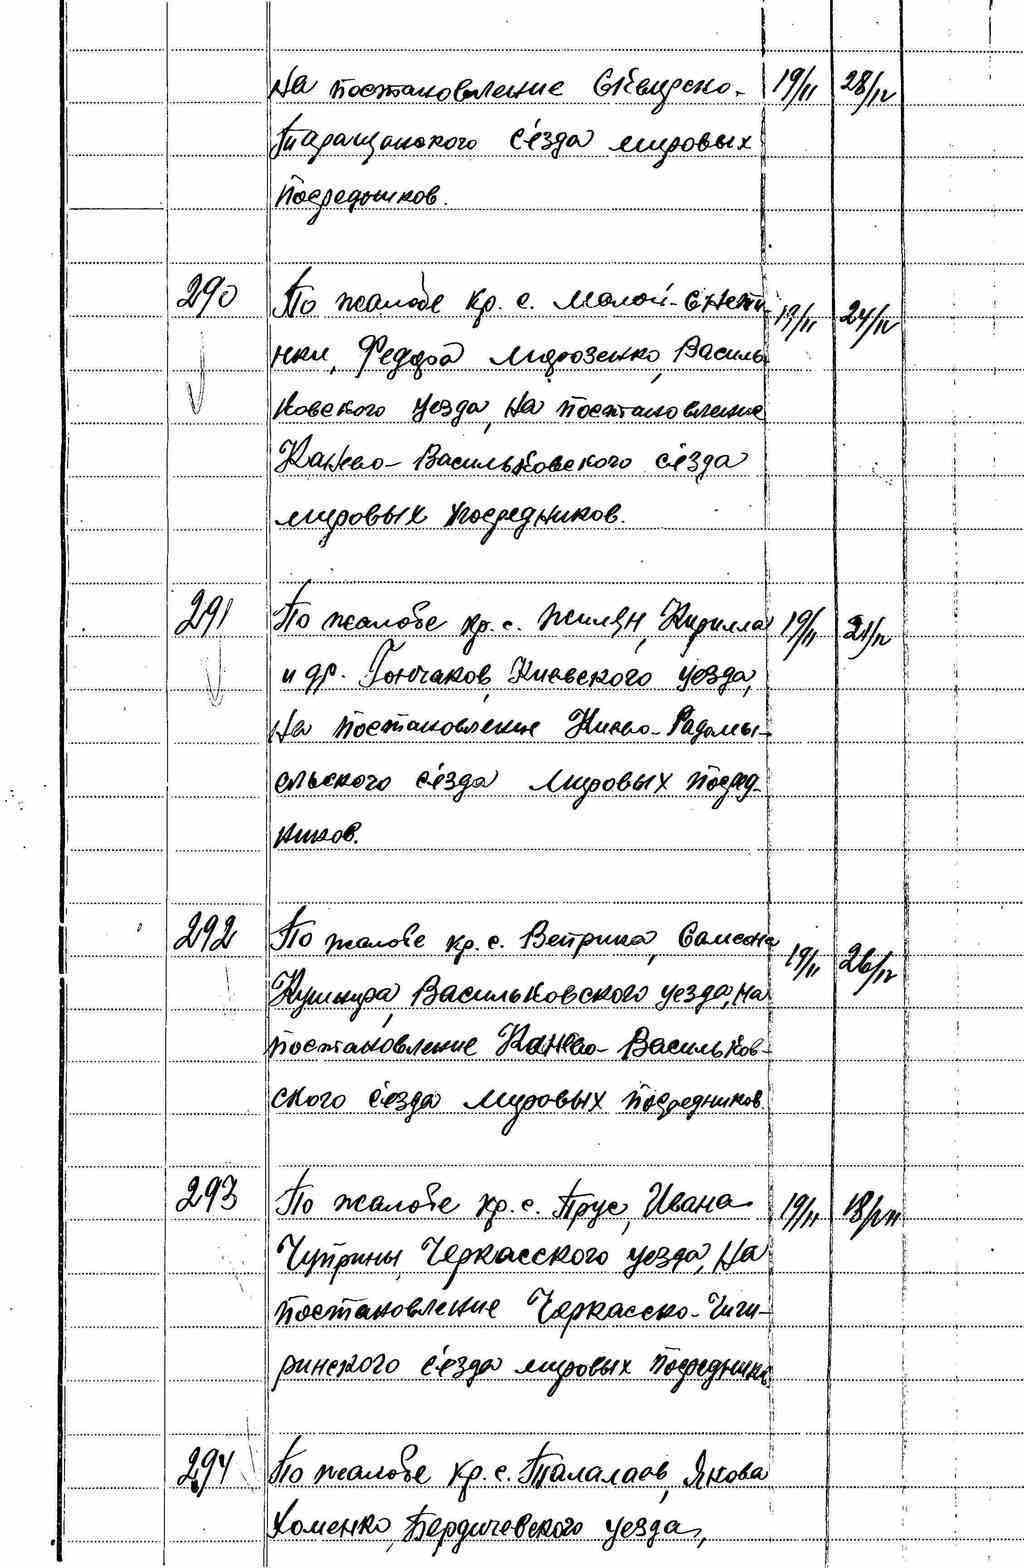 на постановление Сквирско- 19/II 28/IV
Таращанского с'езда мировых
посредников.
290 По жалобе кр. с. Малой-Снети- 19/II 24/IV
нки, Федора Морозенко, Василь
ковского уезда, на постановление
Канево-Васильковского с'езда
мировых посредников.
291 По жалобе кр. с. Жилян, Кирилла 19/II 21/IV
и др. Гончаков, Киевского уезда,
на постановление Киево-Радомы-
сльского с'езда мировых посред-
ников.
292 По жалобе кр. с. Ветрика, Самсона 19/II 26/IV
Кушнира, Васильковского уезда, на
постановление Канево-Васильков-
ского с'езда мировых посредников.
293 По жалобе кр. с. Прус, Ивана 19/II
Чуприны, Черкасского уезда, на
постановление Черкасско-Чиги-
ринского с'езда мировых посредника
294 По жалобе кр. с. Талалаев, Якова
Хоменко, Бердичевского уезда,